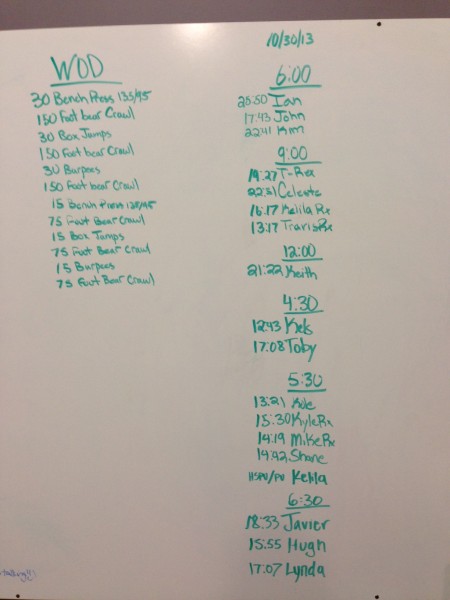 WOD
30 Bench Press 135/95
150 Foot bear Crawl
30 Box Jumps
150 Foot bear Crawl
30 Burpees
150 Foot bear Crawl
15 Bench Press 135/95
75 Foot Bear Crawl
15 Box Jumps
75 Foot Bear Crawl
15 Burpees
75 Foot Bear Crawl
10/30/13
6:00
25:50 Ian
17:43 John
22:41 Kim
9:00
19:27 T-Rex
22:31 Celeste
16:17 Kelila Rx
13:17 Travis Rx
12:00
21:22 Keith
4:30
12:43 Kels
17:08 Toby
5:30
13:21 Kole
15:30 Kyle Rx
14:19 Mike Rx
14:42 Shane
HSPU/PU Kelila
6:30
18:33 Javier
15:55 Hugh
17:07 Lynda